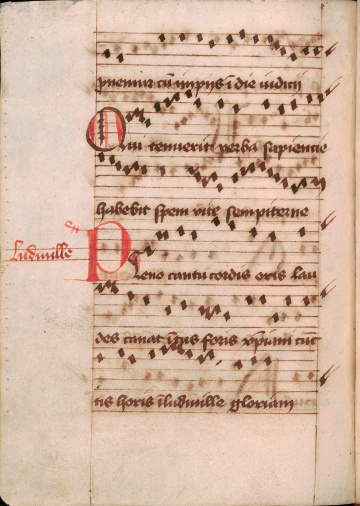 pnemur cū impijs ī die iudicij
Qui tenuerit verba sapiencie
habebit spem vite sempiterne
Ludmille
Pleno cantu cordis oris lau
des canat foris xp̄iani cūc
tis horis ī ludmille gloriam